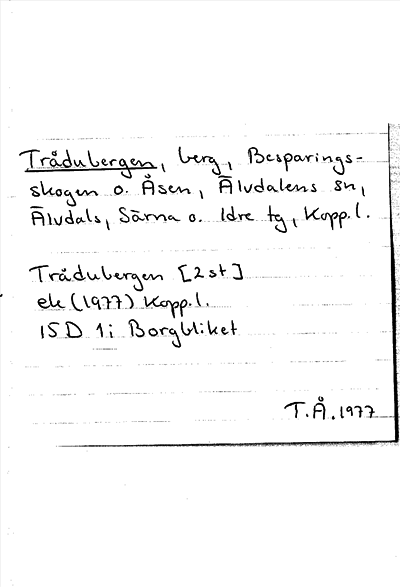 Trådubergen, berg, Besparings-
skogen o. Åsen, Älvdalens sn,
Älvdals, Särna o. Idre tg, Kopp.l.
Trådubergen [2 st]
ek (1977) Kopp.l.
15D 1i Borgbliket
T.Å. 1977